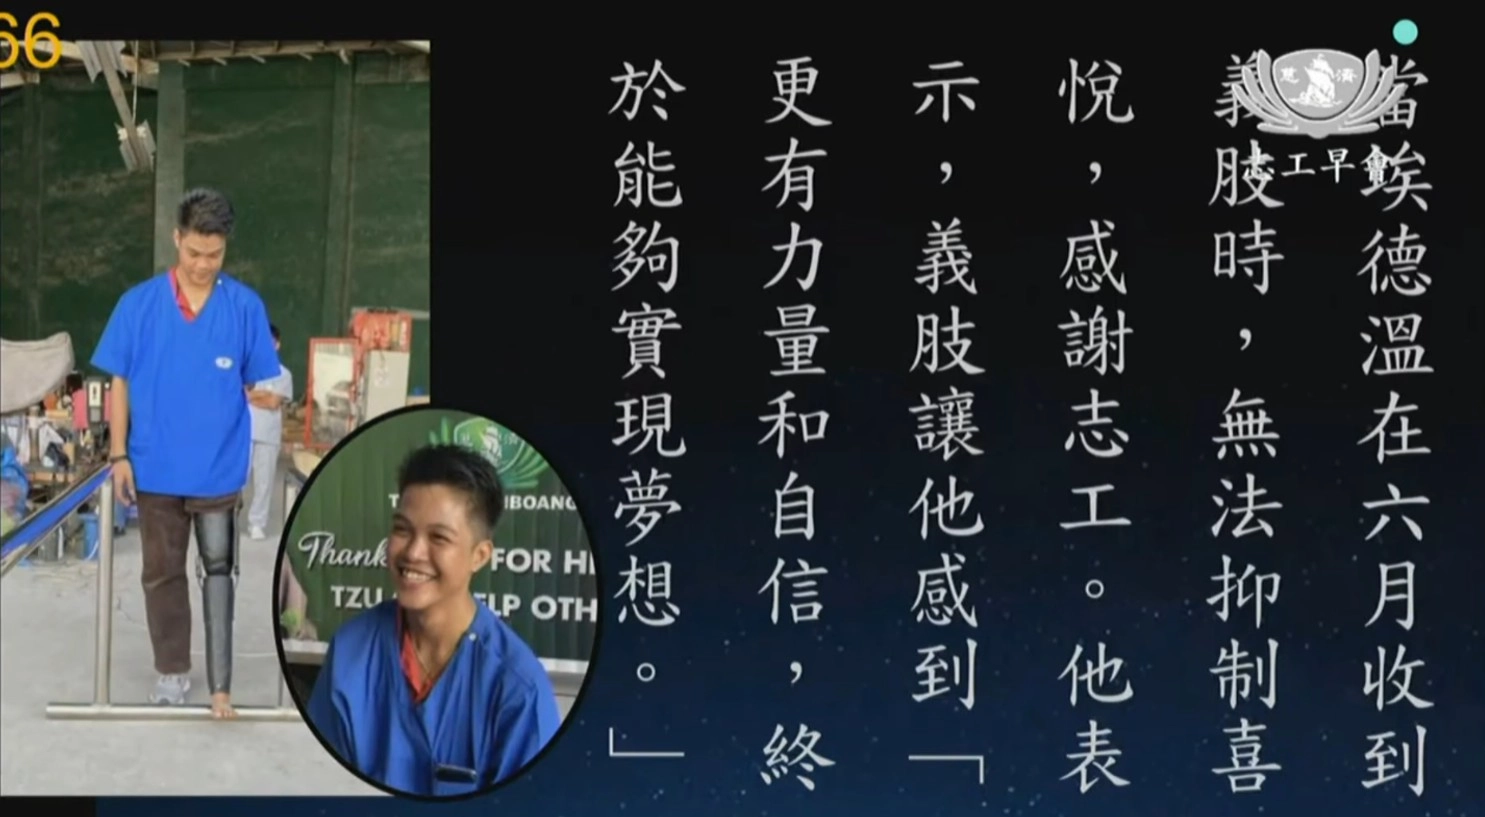 當埃德溫在六月收到
義肢時，無法抑制喜
悅，感謝志工。他表
示，義肢讓他感到「
更有力量和自信，終
於能夠實現夢想。」
慈濟
志工早會
66
濟
Thank
FOR
TZU
OTH